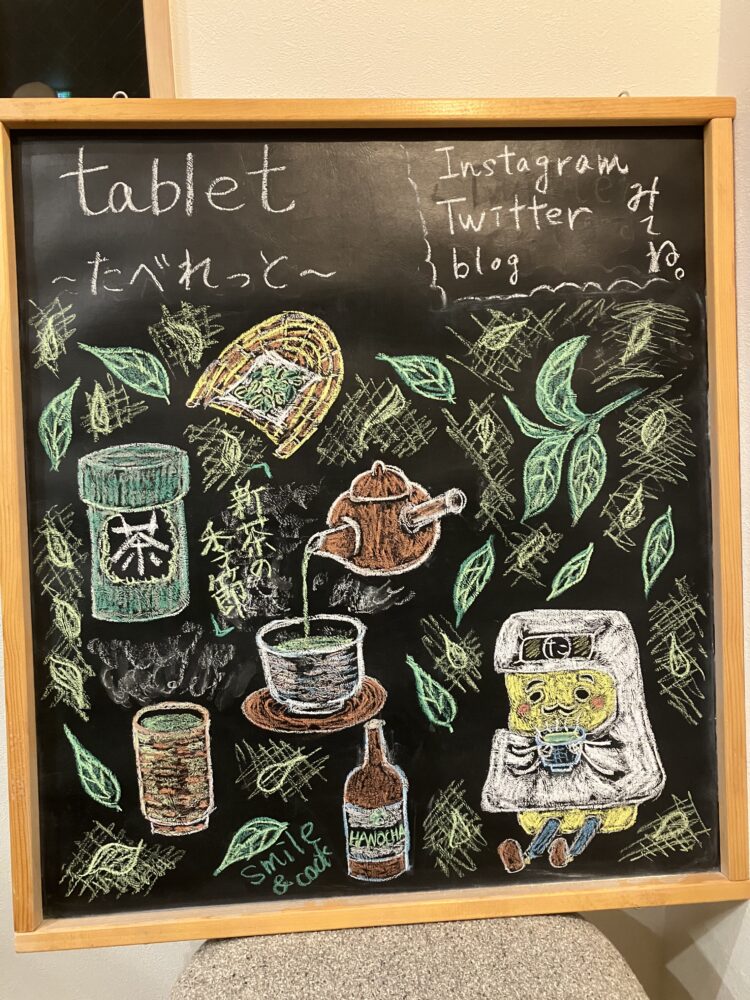 tablet
～たべれっと～
Instagram
Twitter
blog
みてね。
「新茶の
季節」
茶
た
HANOCHA
Smile
& cock